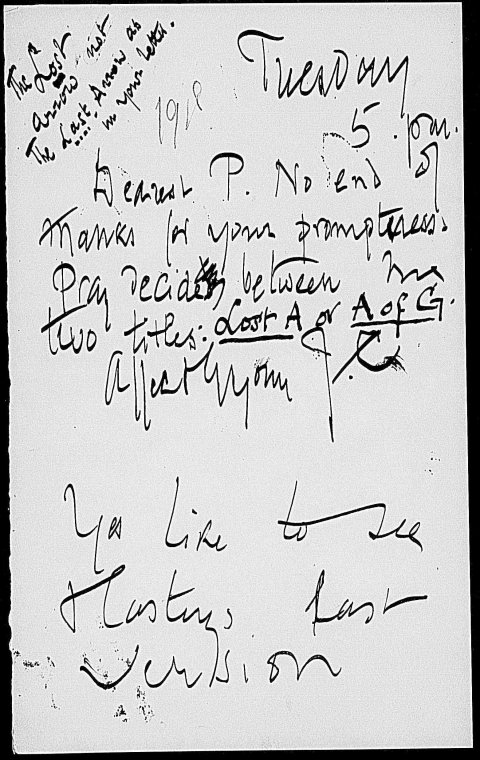 The Lost
Arrow not
The Last Arrow as
in your letter.
1918.
Tuesday
5. pm.
Dearest P. No end of
thanks for your promptness.
Pray decide between the
two titles: Lost A or A of G.
Affectly yours J.
Yes like to see
Hastings last
version